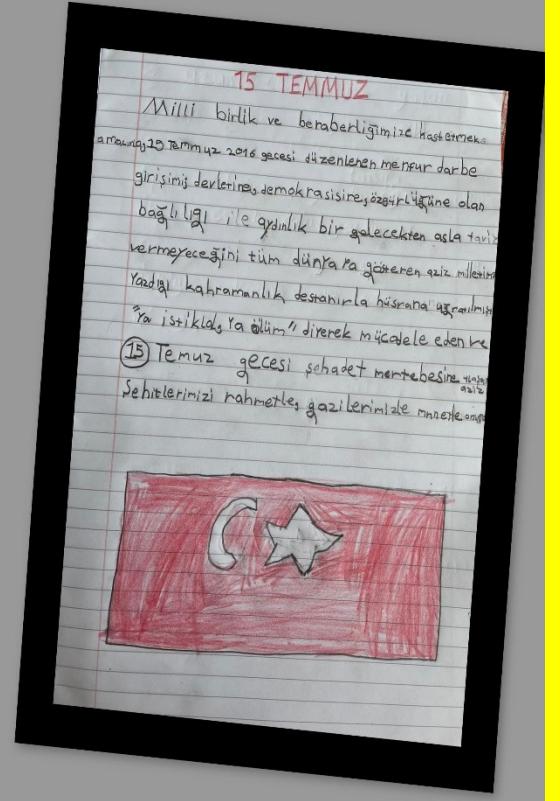 15 TEMMUZ
Milli birlik ve beraberliğimize hastetmek
amacıng 15 Temmuz 2016 gecesi düzenlenen menfur darbe
girişimiş devletine, demokrasisire, özgürlüğüne olan
bağlılığı ile aydınlık bir gelecekten asla taviz
vermeyeceğini tüm dünyaya gösteren aziz milletin
Yazdığı kahramanlık destanırla hüsrana
"Ya istiklal, Ya ölüm" diyerek mücadele eden ve
15 Temuz gecesi şehadet mertebesine
aziz
Şehitlerimizi rahmetle, gazilerimizle